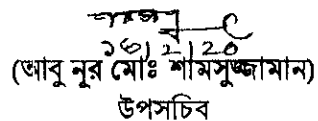 ১৬/২/২০
(আবু নূর মোঃ শামসুজ্জামান)
উপসচিব